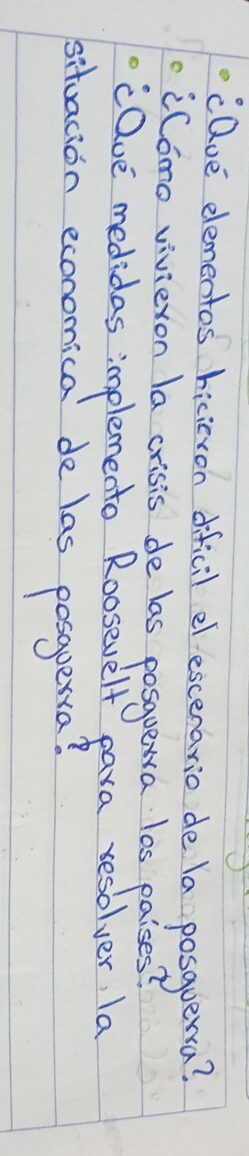 • ¿Qué elementos hicieron difícil el escenario de la posguerra?
• ¿Cómo vivieron la crisis de las posguerra los países?
• ¿Qué medidas implemento Roosevelt para resolver la
situación economica de las posguerra?